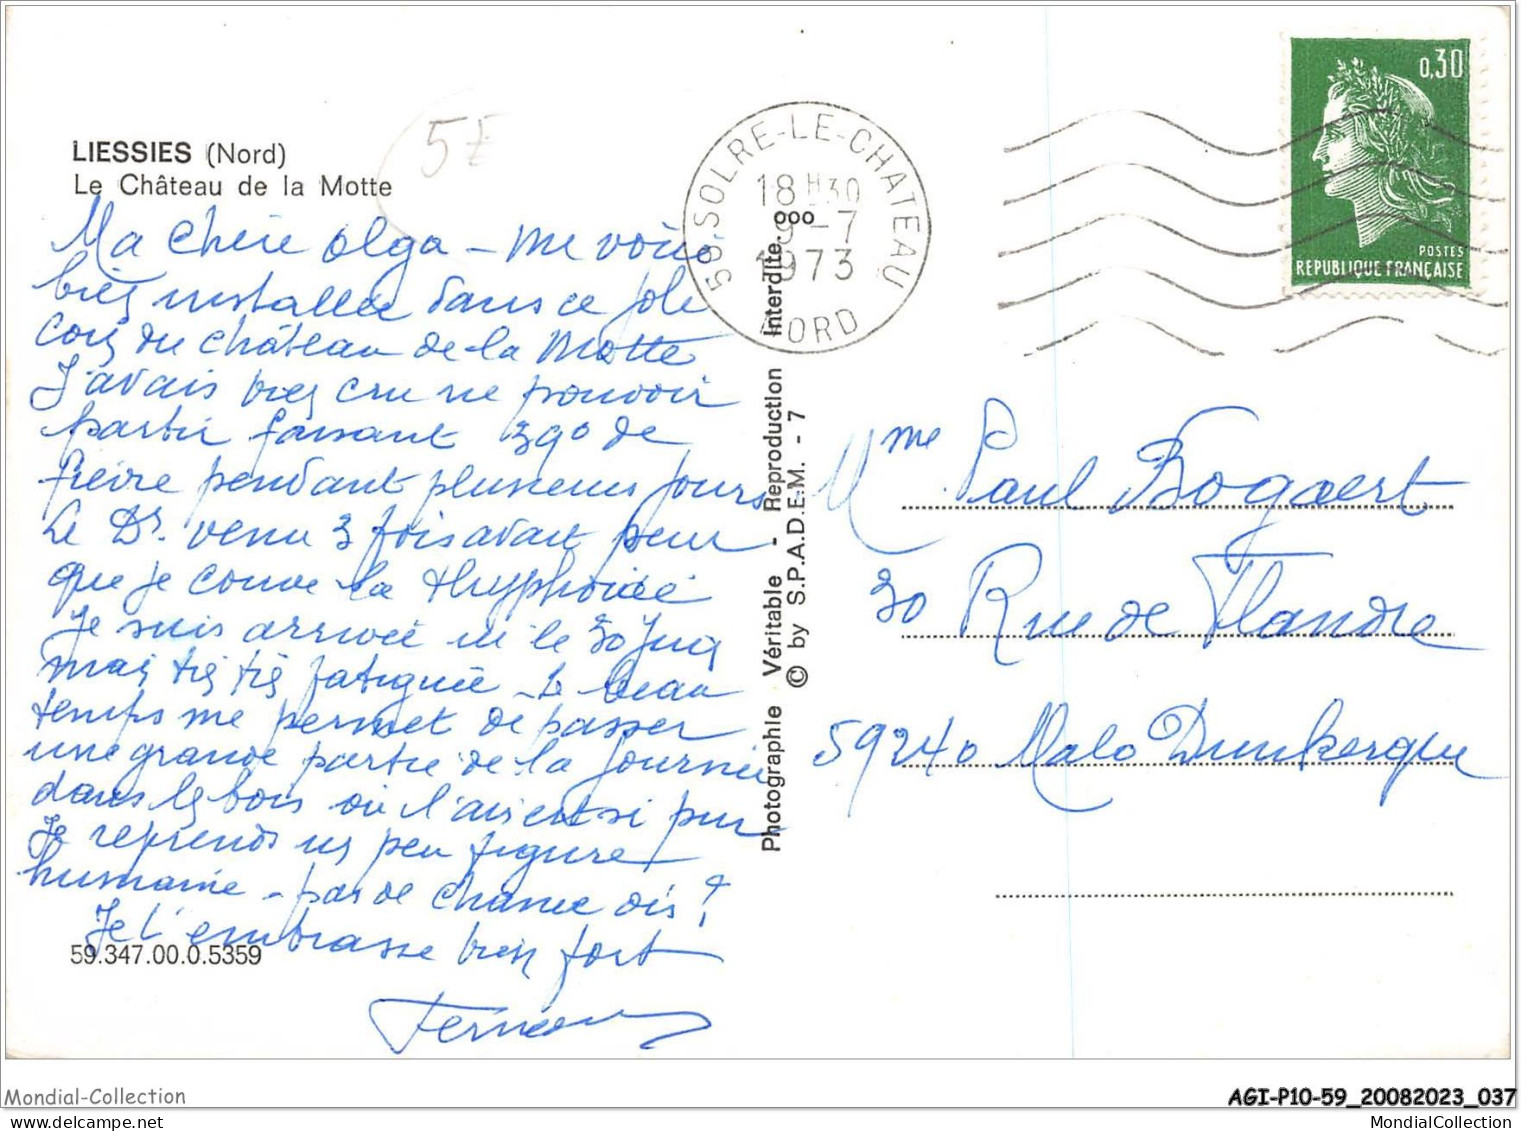 LIESSIES (Nord)
Le Château de la Motte
5F
Ma chère Olga - me voici
bien installée dans ce joli
coin du château de la Motte
J'avais bien cru ne pouvoir
partir faisant 39° de
fièvre pendant plusieurs jours
Le Dr. venu 3 fois avait peur
que je couve la thyphoïde
Je suis arrivée ici le 30 Juin
mais très très fatiguée - Le beau
temps me permet de passer
une grande partie de la journée
dans les bois où l'air est si pur
Je reprends un peu figure
humaine - pas de chance dis ?
Je t'embrasse bien fort
59.347.00.0.5359
59.SOLRE-LE-CHATEAU
18H30
9-7
1973
NORD
0,30
POSTES
REPUBLIQUE FRANÇAISE
Photographie Véritable - Reproduction Interdite. ooo
© by S.P.A.D.E.M. - 7
Mme Paul Bogaert
30 Rue de Flandre
59240 Malo Dunkerque
Mondial-Collection
AGI-P10-59_20082023_037
MondialCollection
MondialCollection